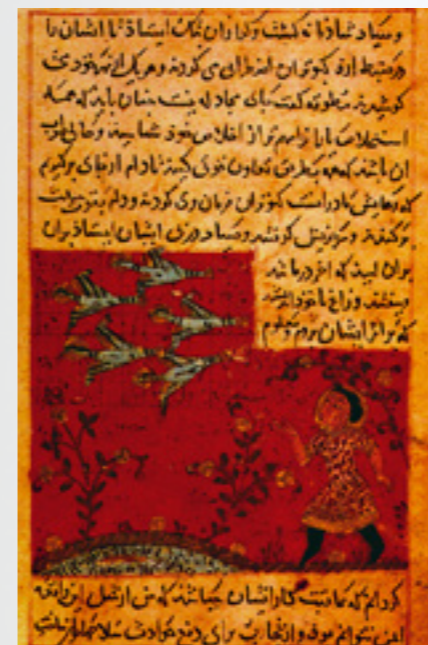 و صیاد شادمانه گشت و گرازان بتگ ایستاذ تا ایشان را
در ضبط ارد کبوتران اضطرابی می کردند و هر یک از بهر خود می
کوشید مطوقه گفت جای مجادله نیست چنان باید که همه
استخلاص یاران را مهم تر از تخلص خود شناسند و حالی صواب
ان باشد که همه بطریق تعاون قوتی کنید تا دام از جای برگیریم
که رهایش ما در انست کبوتران فرمان وی کردند و دام
برکندند و سر خویش گرفتند و صیاد در پی ایشان ایستاذ بران
امید که اخر درمانند
و بیفتند و زاغ با خود اندیشید
که بر اثر ایشان بروم و معلوم
گردانم که عاقبت کار ایشان چه باشد که من از مثل این واقعه
ایمن نتوانم بود و از تجارب برای دفع حوادث سلاحها توان ساخت